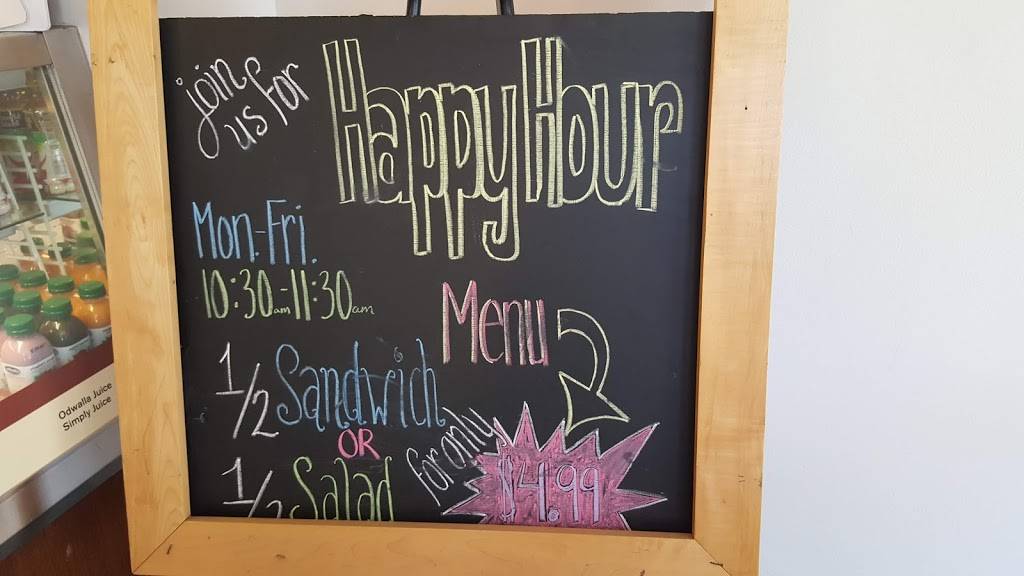 join
us for
Happy Hour
Mon-Fri.
10:30am-11:30am
Menu
1/2 Sandwich
OR
1/2 Salad
for only
$4.99
Odwalla Juice
Simply Juice